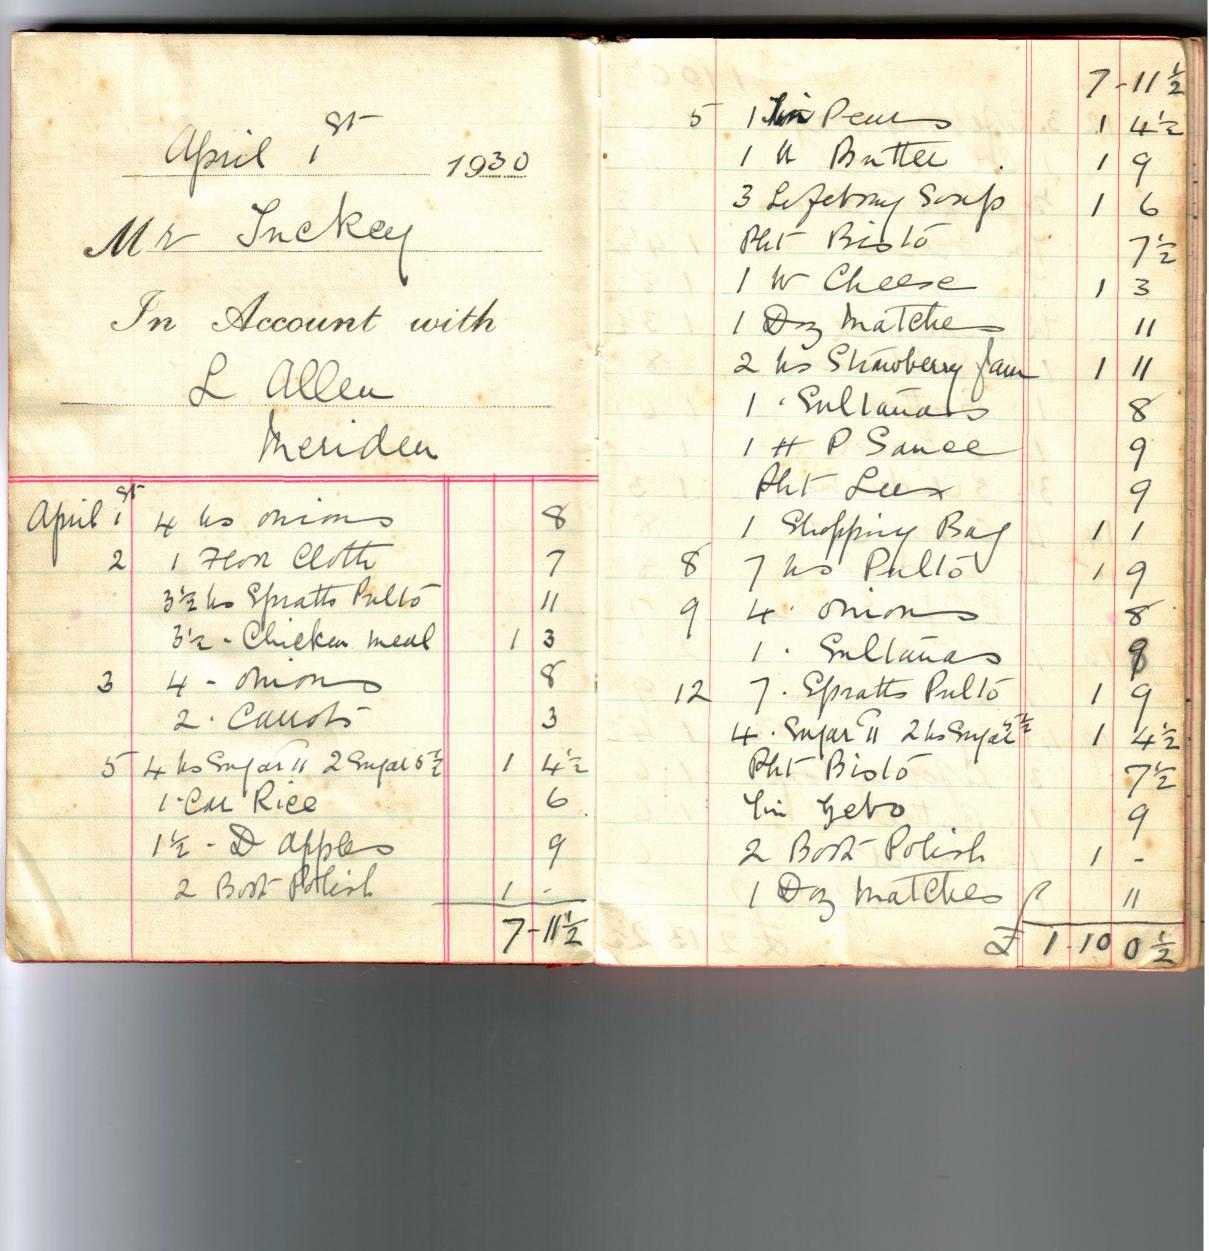 April 1st 1930
Mr Tuckey
In Account with
L Allen
Meriden
April 1st 4 lbs onions 8
2 1 Floor Cloth 7
3½ lbs Spratts Pulto 11
3½ - Chicken meal 1 3
3 4 - onions 8
2 · Carrots 3
5 4 lbs Sugar 11 2 Sugar 5½ 1 4½
1 · Car Rice 6
1½ - D apples 9
2 Boot Polish 1 -
7-11½
7-11½
5 1 Tin Pears 1 4½
1 lb Butter 1 9
3 Lifebuoy Soap 1 6
Pkt Bisto 7½
1 lb Cheese 1 3
1 Doz Matches 11
2 lbs Strawberry Jam 1 11
1 · Sultanas 8
1 H P Sauce 9
Pkt Lux 9
1 Shopping Bag 1 1
8 7 lbs Pulto 1 9
9 4 · onions 8
1 · Sultanas 8
12 7 · Spratts Pulto 1 9
4 · Sugar 11 2 lbs Sugar 5½ 1 4½
Pkt Bisto 7½
Tin Zebo 9
2 Boot Polish 1 -
1 Doz Matches 11
£ 1-10 0½